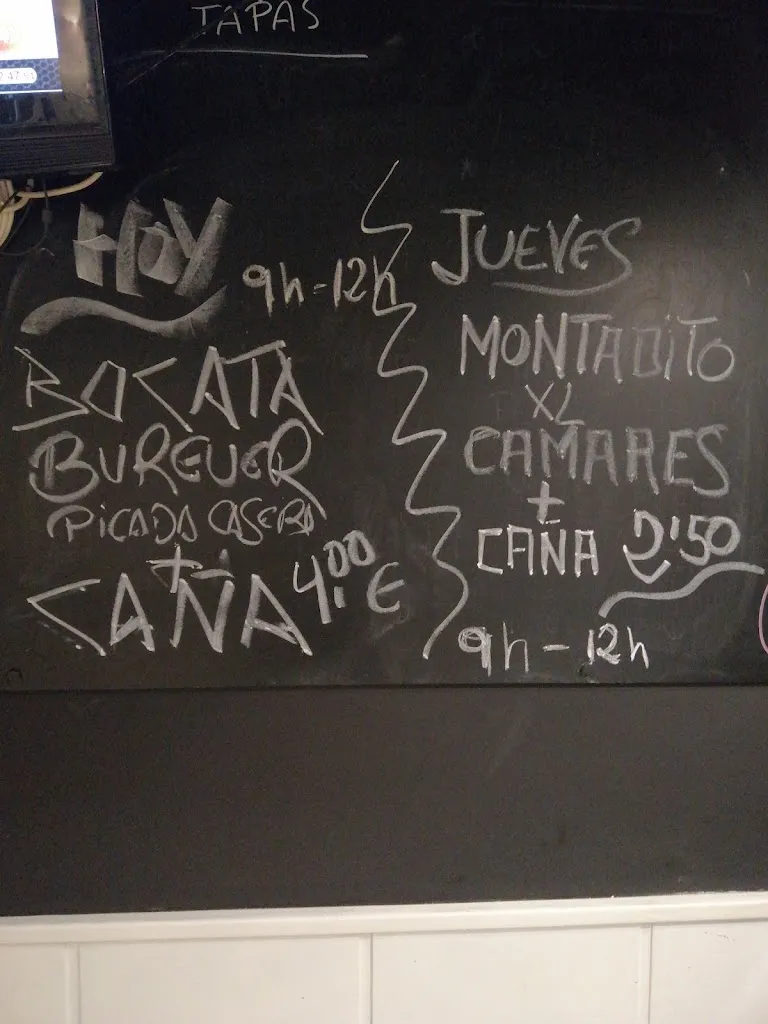 TAPAS
HOY
9h-12h
BOCATA
BURGUER
PICADA CASERA
+
CAÑA 4.00 €
JUEVES
MONTADITO
XL
CAMARES
+
CAÑA 2'50
9h - 12h